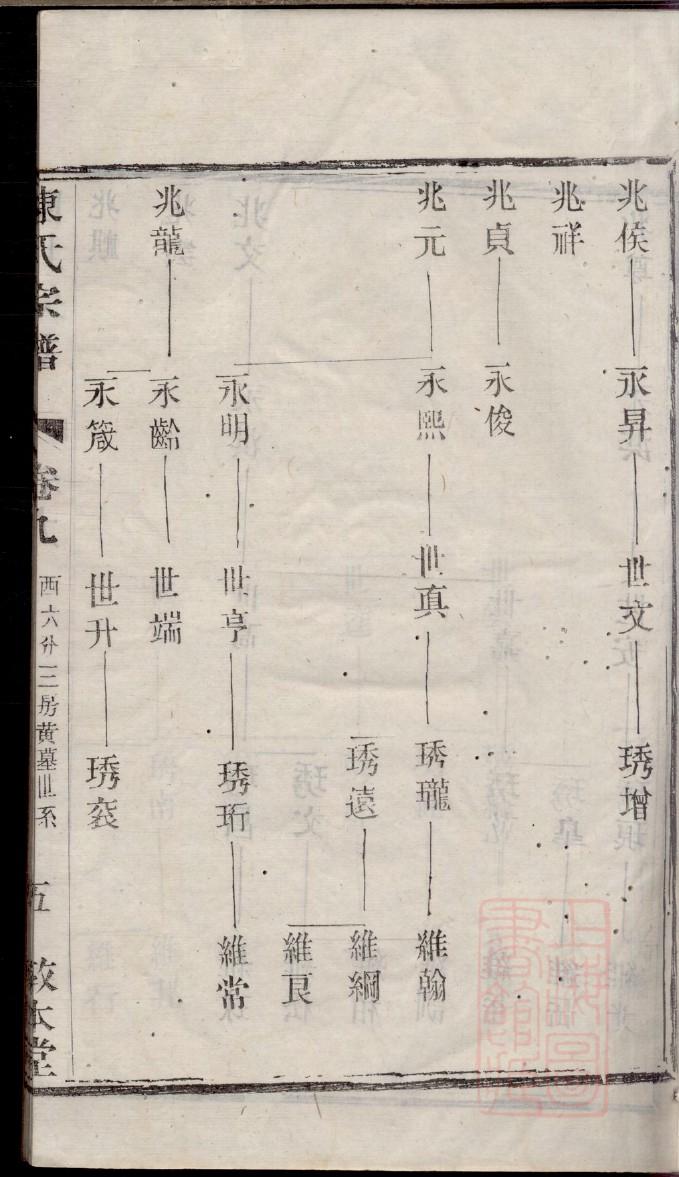 兆侯 永昇 世文 琇增
兆祥
兆貞 永俊
兆元 永熙 世真 琇瓏 維翰
琇遠 維綱
維良
永明 世亨 琇珩 維常
兆龍 永齡 世端
永箴 世升 琇衮
陳氏宗譜 卷九 西六分三房黄墓世系 五 敦本堂